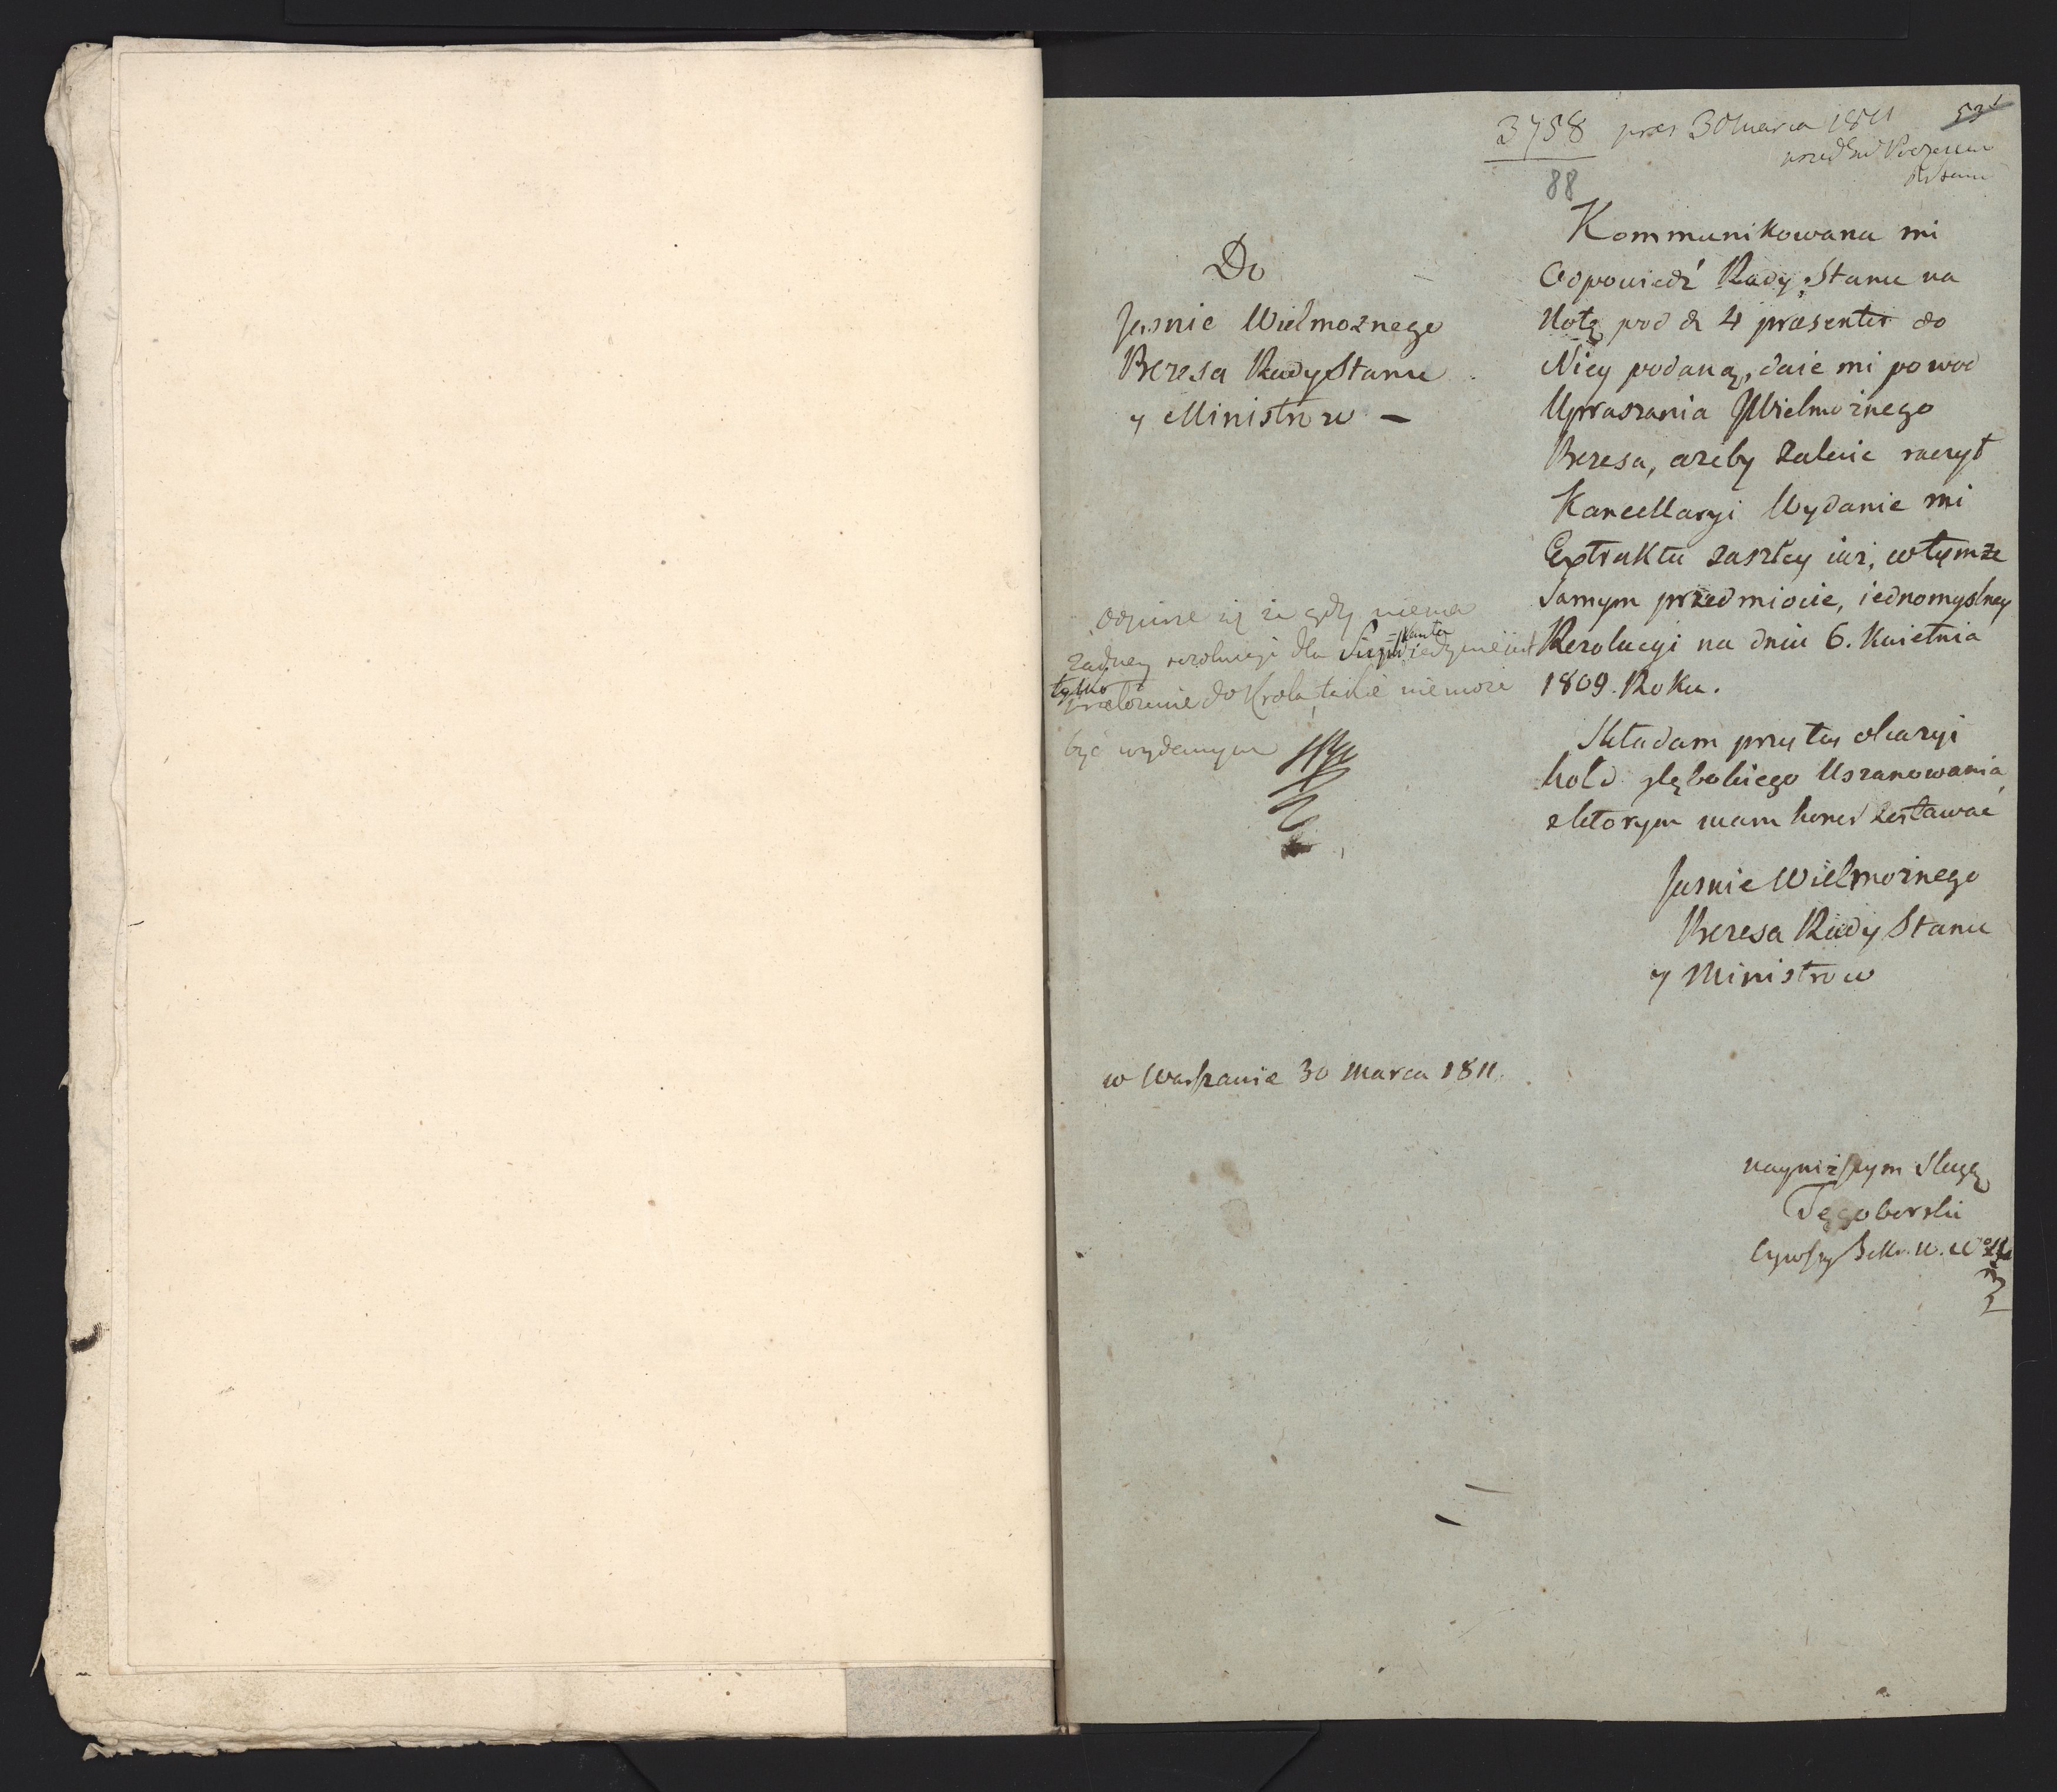 3758 pres 30 Marca 1811
53
88
Do
Jasnie Wielmoznego
Prezesa Rady Stanu
y Ministrow —
Kommunikowana mi
Odpowiedź Rady Stanu na
Notę pod d. 4 præsentis do
Niey podaną, daie mi powod
Upraszania JWielmożnego
Prezesa, ażeby Zalecic raczył
Kancellaryi Wydanie mi
Extraktu zaszłey iuż, w tymże
Samym przedmiocie, iednomyslney
Rezolucyi na dniu 6. Kwietnia
1809. Roku.
Składam przy tey okazyi
hołd głębokiego Uszanowania,
z ktorym mam honor Zostawać
Jasnie Wielmożnego
Prezesa Rady Stanu
y Ministrow
odpisze się że gdy niema
żadney rezolucyi dla Supplikanta iedynie iest
tylko przełożenie do Krola, takie nie może
być wydanym
w Warszawie 30 Marca 1811.
nayniższym Sługą
Tęgoborski
bywszy Sekr.